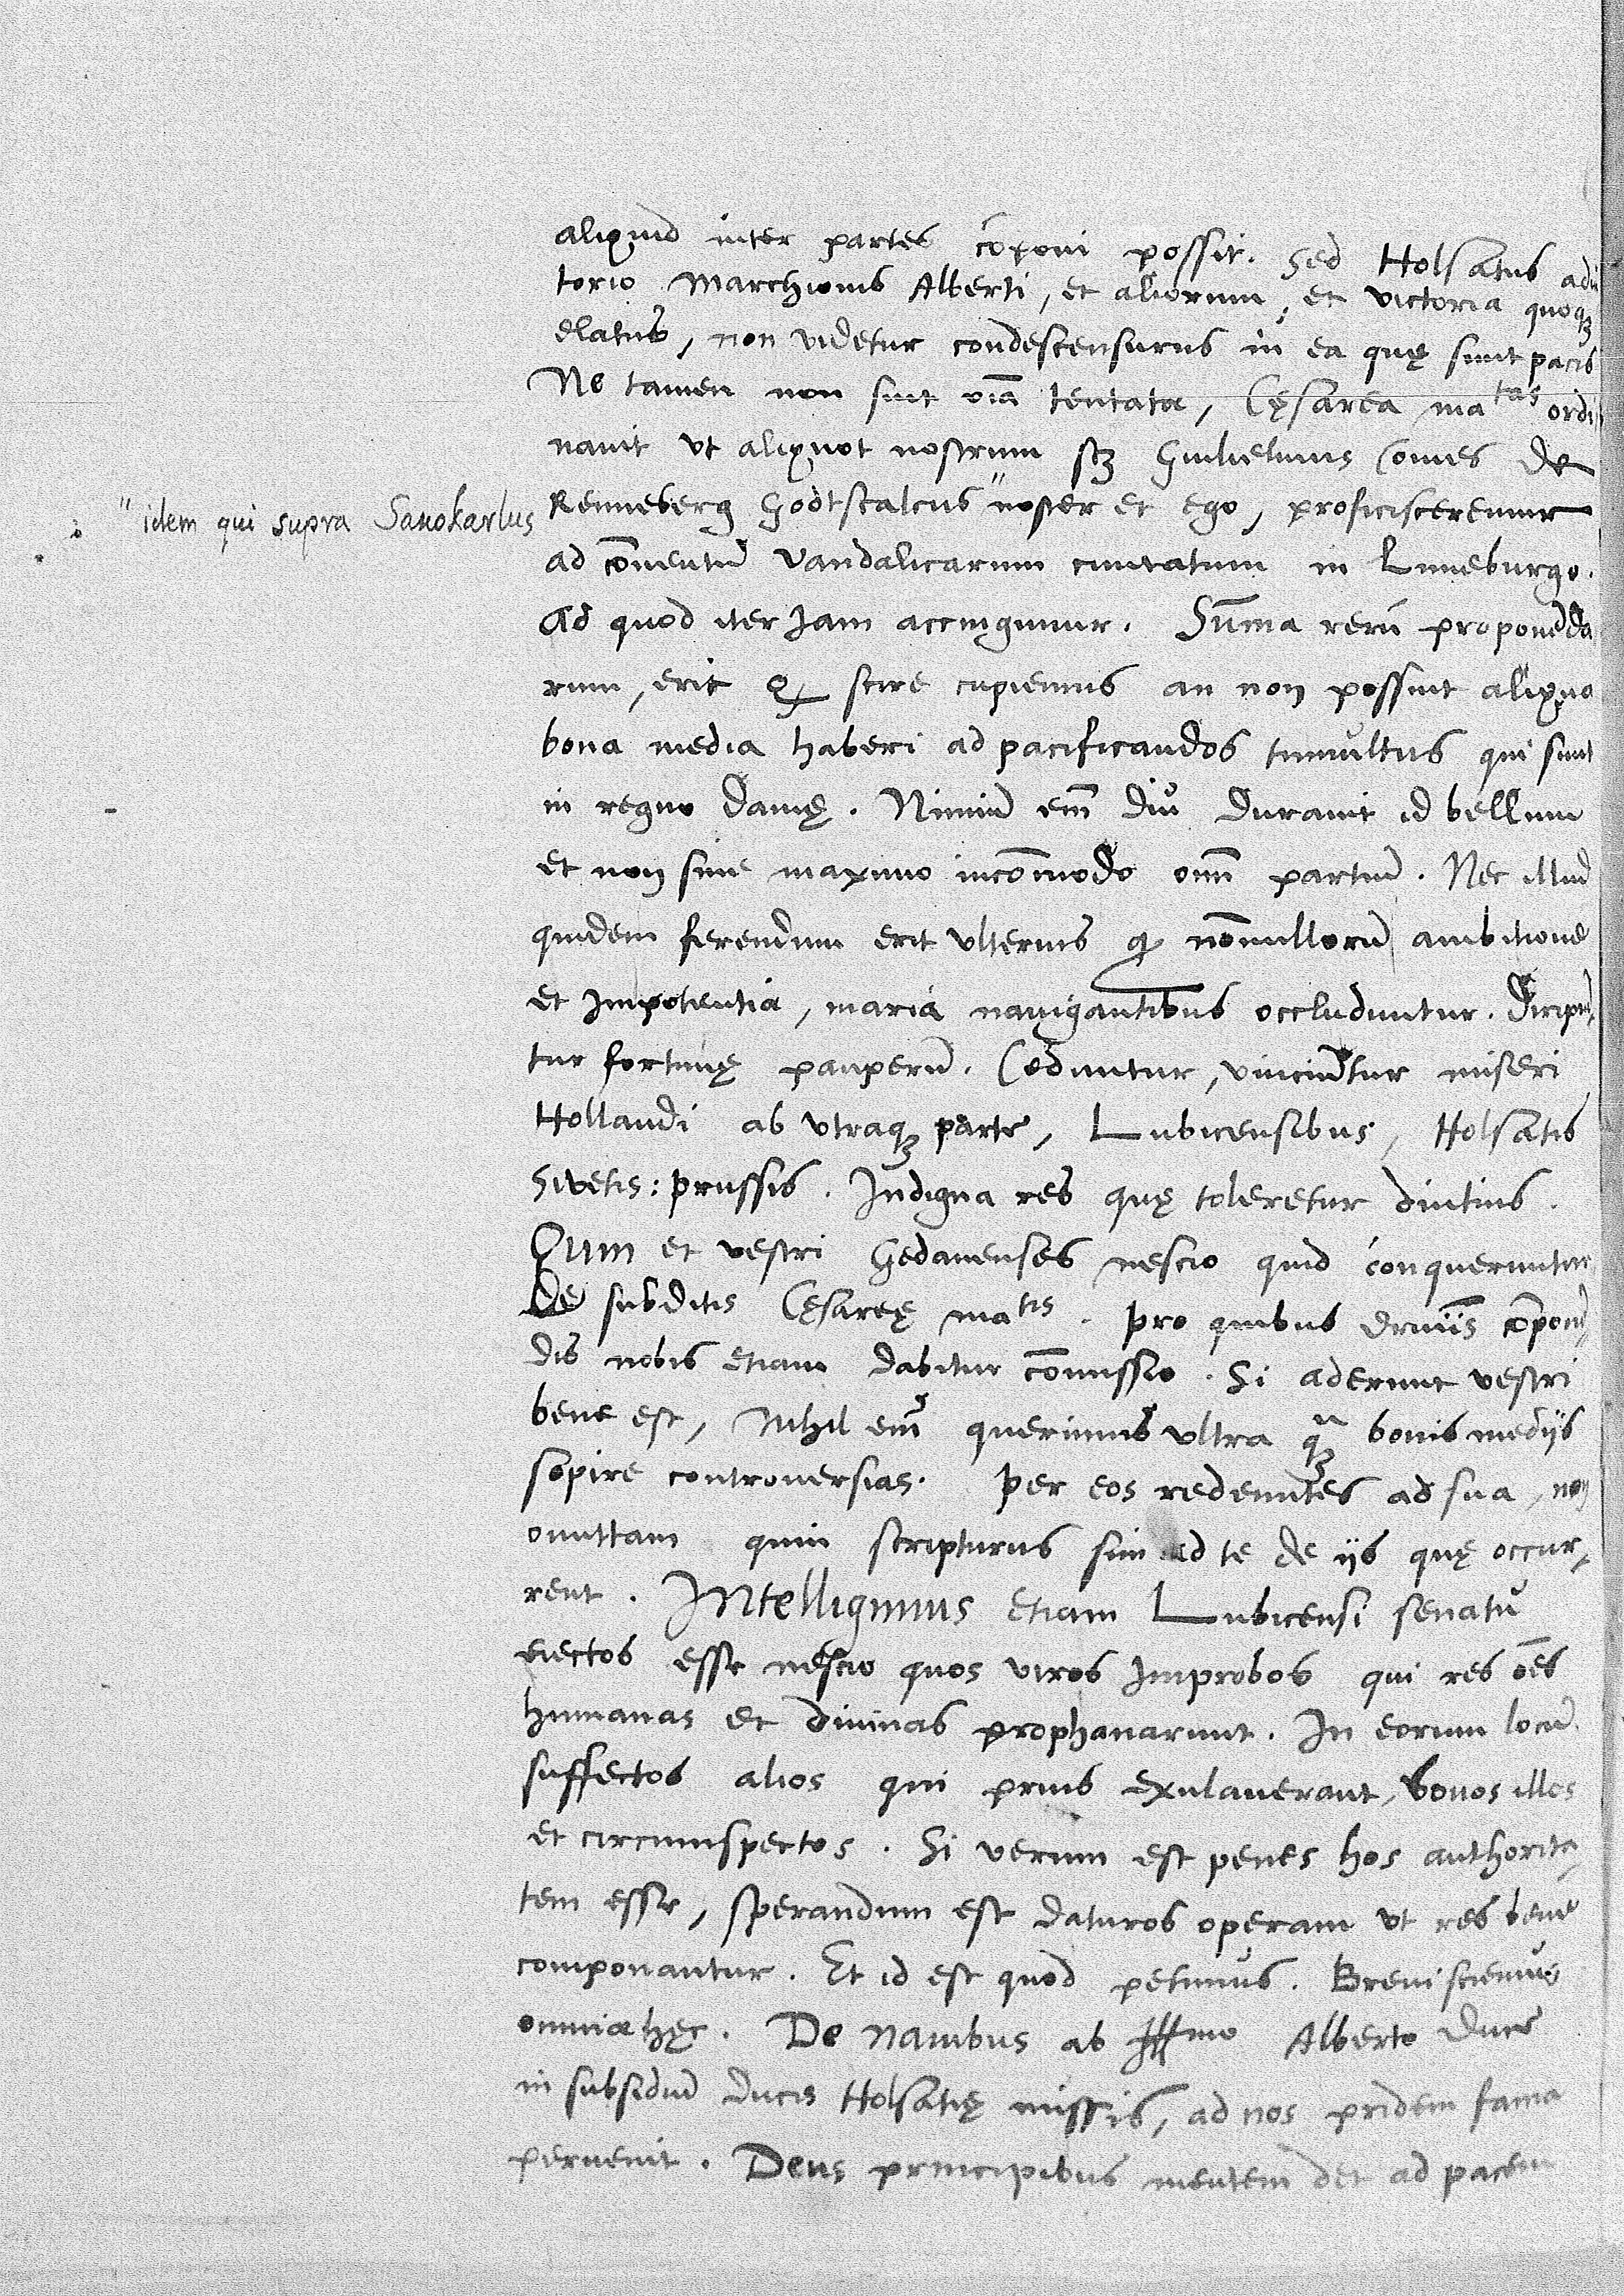 aliquid inter partes cōponi possit. Sed Holsatus adiu
torio Marchionis Alberti, et aliorum, et victoria quoqȝ
elatus, non videtur condescensurus in ea quę sunt pacis
Ne tamen non sint oīa tentata, Cęsarea matas ordi
nauit vt aliquot nostrum scȝ Guilielmus Comes de
Renneberg Godtscalcus " noster et ego, proficisceremur
" idem qui supra Saxokarlus
ad cōuentū Vandalicarum ciuitatum in Luneburgo.
Ad quod iter Jam accingimur. Sūma rerū proponēda
rum, erit ꝙ scire cupiemus an non possint aliqua
bona media haberi ad pacificandos tumultus qui sunt
in regno Danię. Nimiū em̄ diu durauit id bellum
et non sine maximo incōmodo om̄ partiū. Nec illud
quidem ferendum erit vlterius ꝙ nōnullorū ambitione
et Impotentia, maria nauigantibus occluduntur. Diripiū,
tur fortunę pauperū. Cęduntur, vinciūtur miseri
Hollandi ab vtraqȝ parte, Lubicensibus, Holsatis
Suetis: prussis. Indigna res quę toleretur diutius.
Cum et vestri Gedanenses nescio quid conqueruntur
De subditis Cęsareę matis. Pro quibus omīs cōponē,
dis nobis etiam dabitur cōmissio. Si aderunt vestri
bene est, Nihil em̄ querimus vltra qȝ bonis medijs
sopire controuersias. Per eos redeuntes ad sua, non
omittam quin scripturus sim ad te de ijs quę occur,
rent. Intelligimus etiam Lubicensi senatu
eiectos esse nescio quos viros Improbos qui res oēs
humanas et diuinas prophanarunt. In eorum locū
suffectos alios qui prius exulauerant, bonos illos
et circumspectos. Si verum est penes hos authorita,
tem esse, sperandum est daturos operam vt res bene
componantur. Et id est quod petimus. Breui sciemus
omnia hęc. De nauibus ab Illmo Alberto Duce
in subsidiū Ducis Holsatię missis, ad nos pridem fama
peruenit. Deus principibus mentem det ad pacem